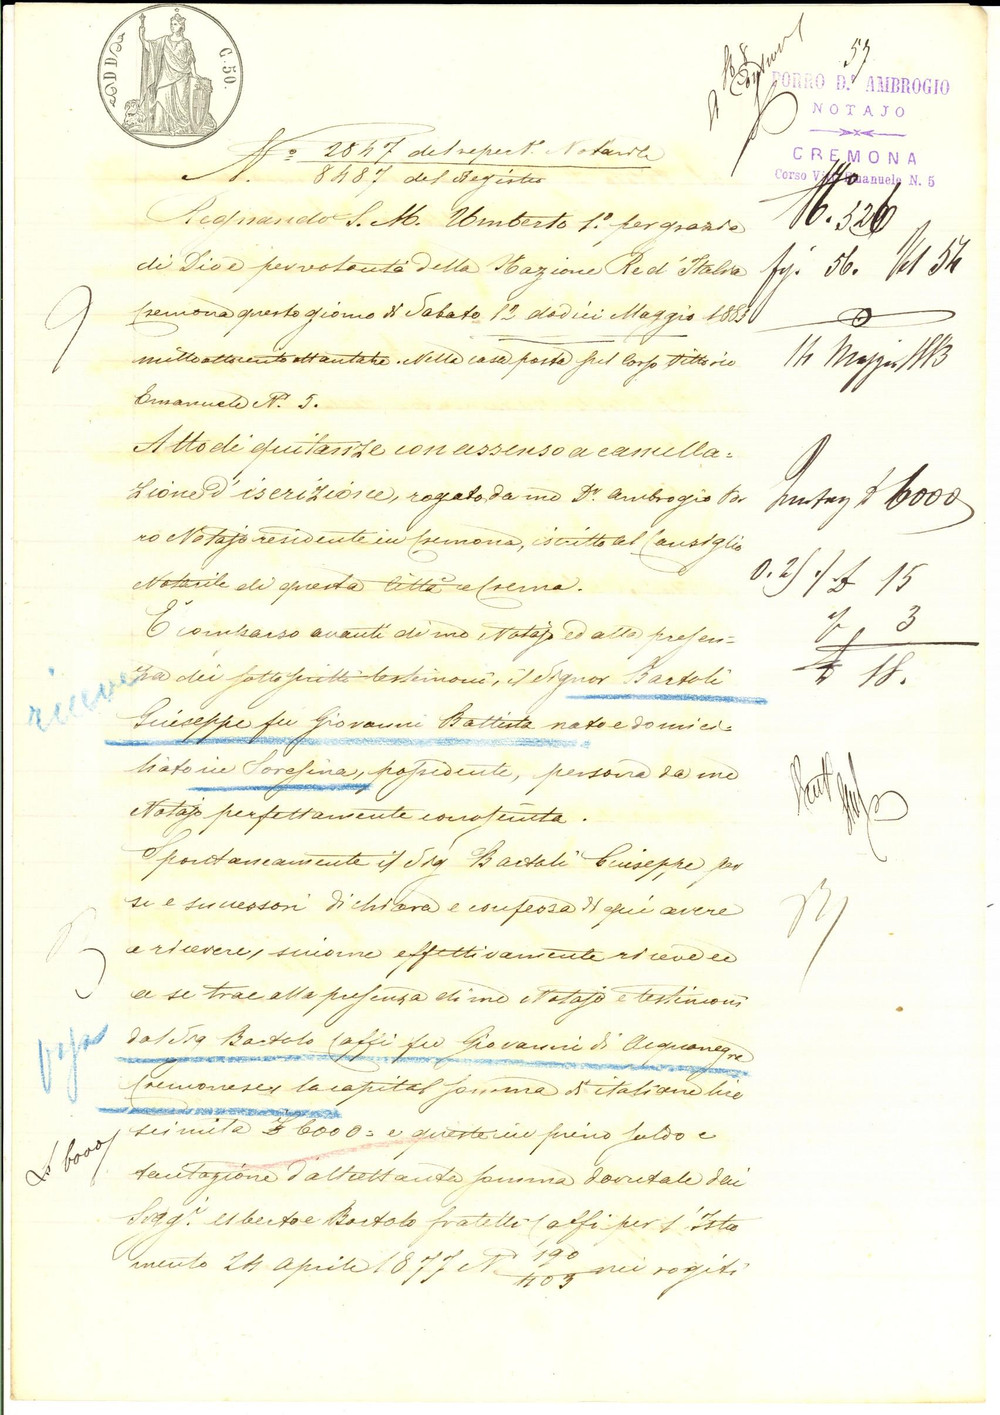 C. 50.
57
PORRO D.r AMBROGIO
NOTAJO
CREMONA
Corso Vitt. Emanuele N. 5
N.o 2847 del repert. Notarile
N. 8487 del Registro
Regnando S. M. Umberto 1.o per grazia
di Dio e per volontà della Nazione Re d'Italia
Cremona questo giorno di Sabato 12 dodici Maggio 1883
milleottocentottantatre. Nella casa posta sul Corso Vittorio
Emanuele N.o 5.
N. 526
fg. 56. Vol 54
14 Maggio 1883
Atto di quitanza con assenso a cancella=
zione d'iscrizione, rogato da me Dr. Ambrogio Por
ro Notajo residente in Cremona, iscritto al Consiglio
Notarile di questa Città e Crema.
£ 6000
£ 15
3
£ 18.
È comparso avanti di me Notajo ed alla presen=
za dei sottoscritti testimoni, il Signor Bartoli
riceve
Giuseppe fu Giovanni Battista nato e domici=
liato in Soresina, possidente, persona da me
Notajo perfettamente conosciuta.
Spontaneamente il Sig Bartoli Giuseppe per
se e successori dichiara e confessa di qui avere
e ricevere, siccome effettivamente riceve ed
a se trae alla presenza di me Notajo e testimoni
dal Sig Bartolo Caffi fu Giovanni di Acquanegra
Cremonese, la capital somma di italiane lire
seimila £ 6000= e queste in pieno saldo e
£ 6000
tacitazione d'altrettanta somma dovutale dai
Sigg.i Alberto e Bartolo fratelli Caffi per l'Istro
mento 24 aprile 1877 N. 190/403 nei rogiti